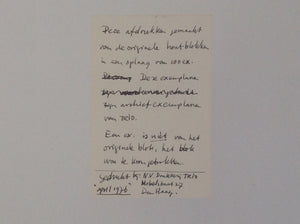 Deze afdrukken gemaakt
van de originele houtblokken
in een oplaag van 100 ex.
Deze exemplaren
zijn archief exemplaren
van TRIO.
Een ex. is niet van het
originele blok, het blok
was te krom getrokken.
Gedrukt bij: N.V. Drukkerij Trio
"april 1976" Nobelstraat 27
Den Haag.